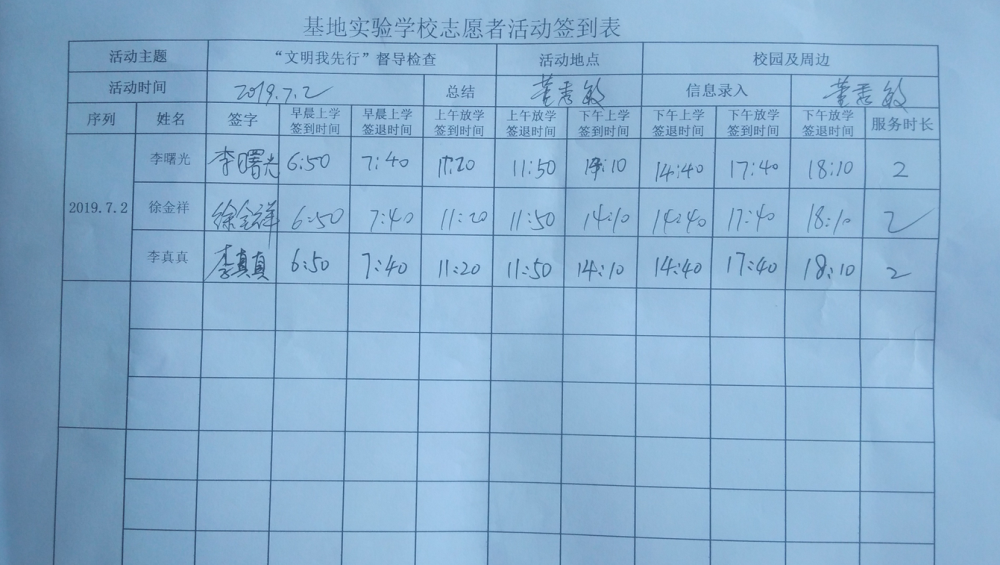 基地实验学校志愿者活动签到表
活动主题 “文明我先行”督导检查 活动地点 校园及周边
活动时间 2019.7.2 总结 董秀敏 信息录入 董秀敏
序列 姓名 签字 早晨上学签到时间 早晨上学签退时间 上午放学签到时间 上午放学签退时间 下午上学签到时间 下午上学签退时间 下午放学签到时间 下午放学签退时间 服务时长
李曙光 李曙光 6:50 7:40 11:20 11:50 14:10 14:40 17:40 18:10 2
2019.7.2 徐金祥 徐金祥 6:50 7:40 11:20 11:50 14:10 14:40 17:40 18:10 2
李真真 李真真 6:50 7:40 11:20 11:50 14:10 14:40 17:40 18:10 2